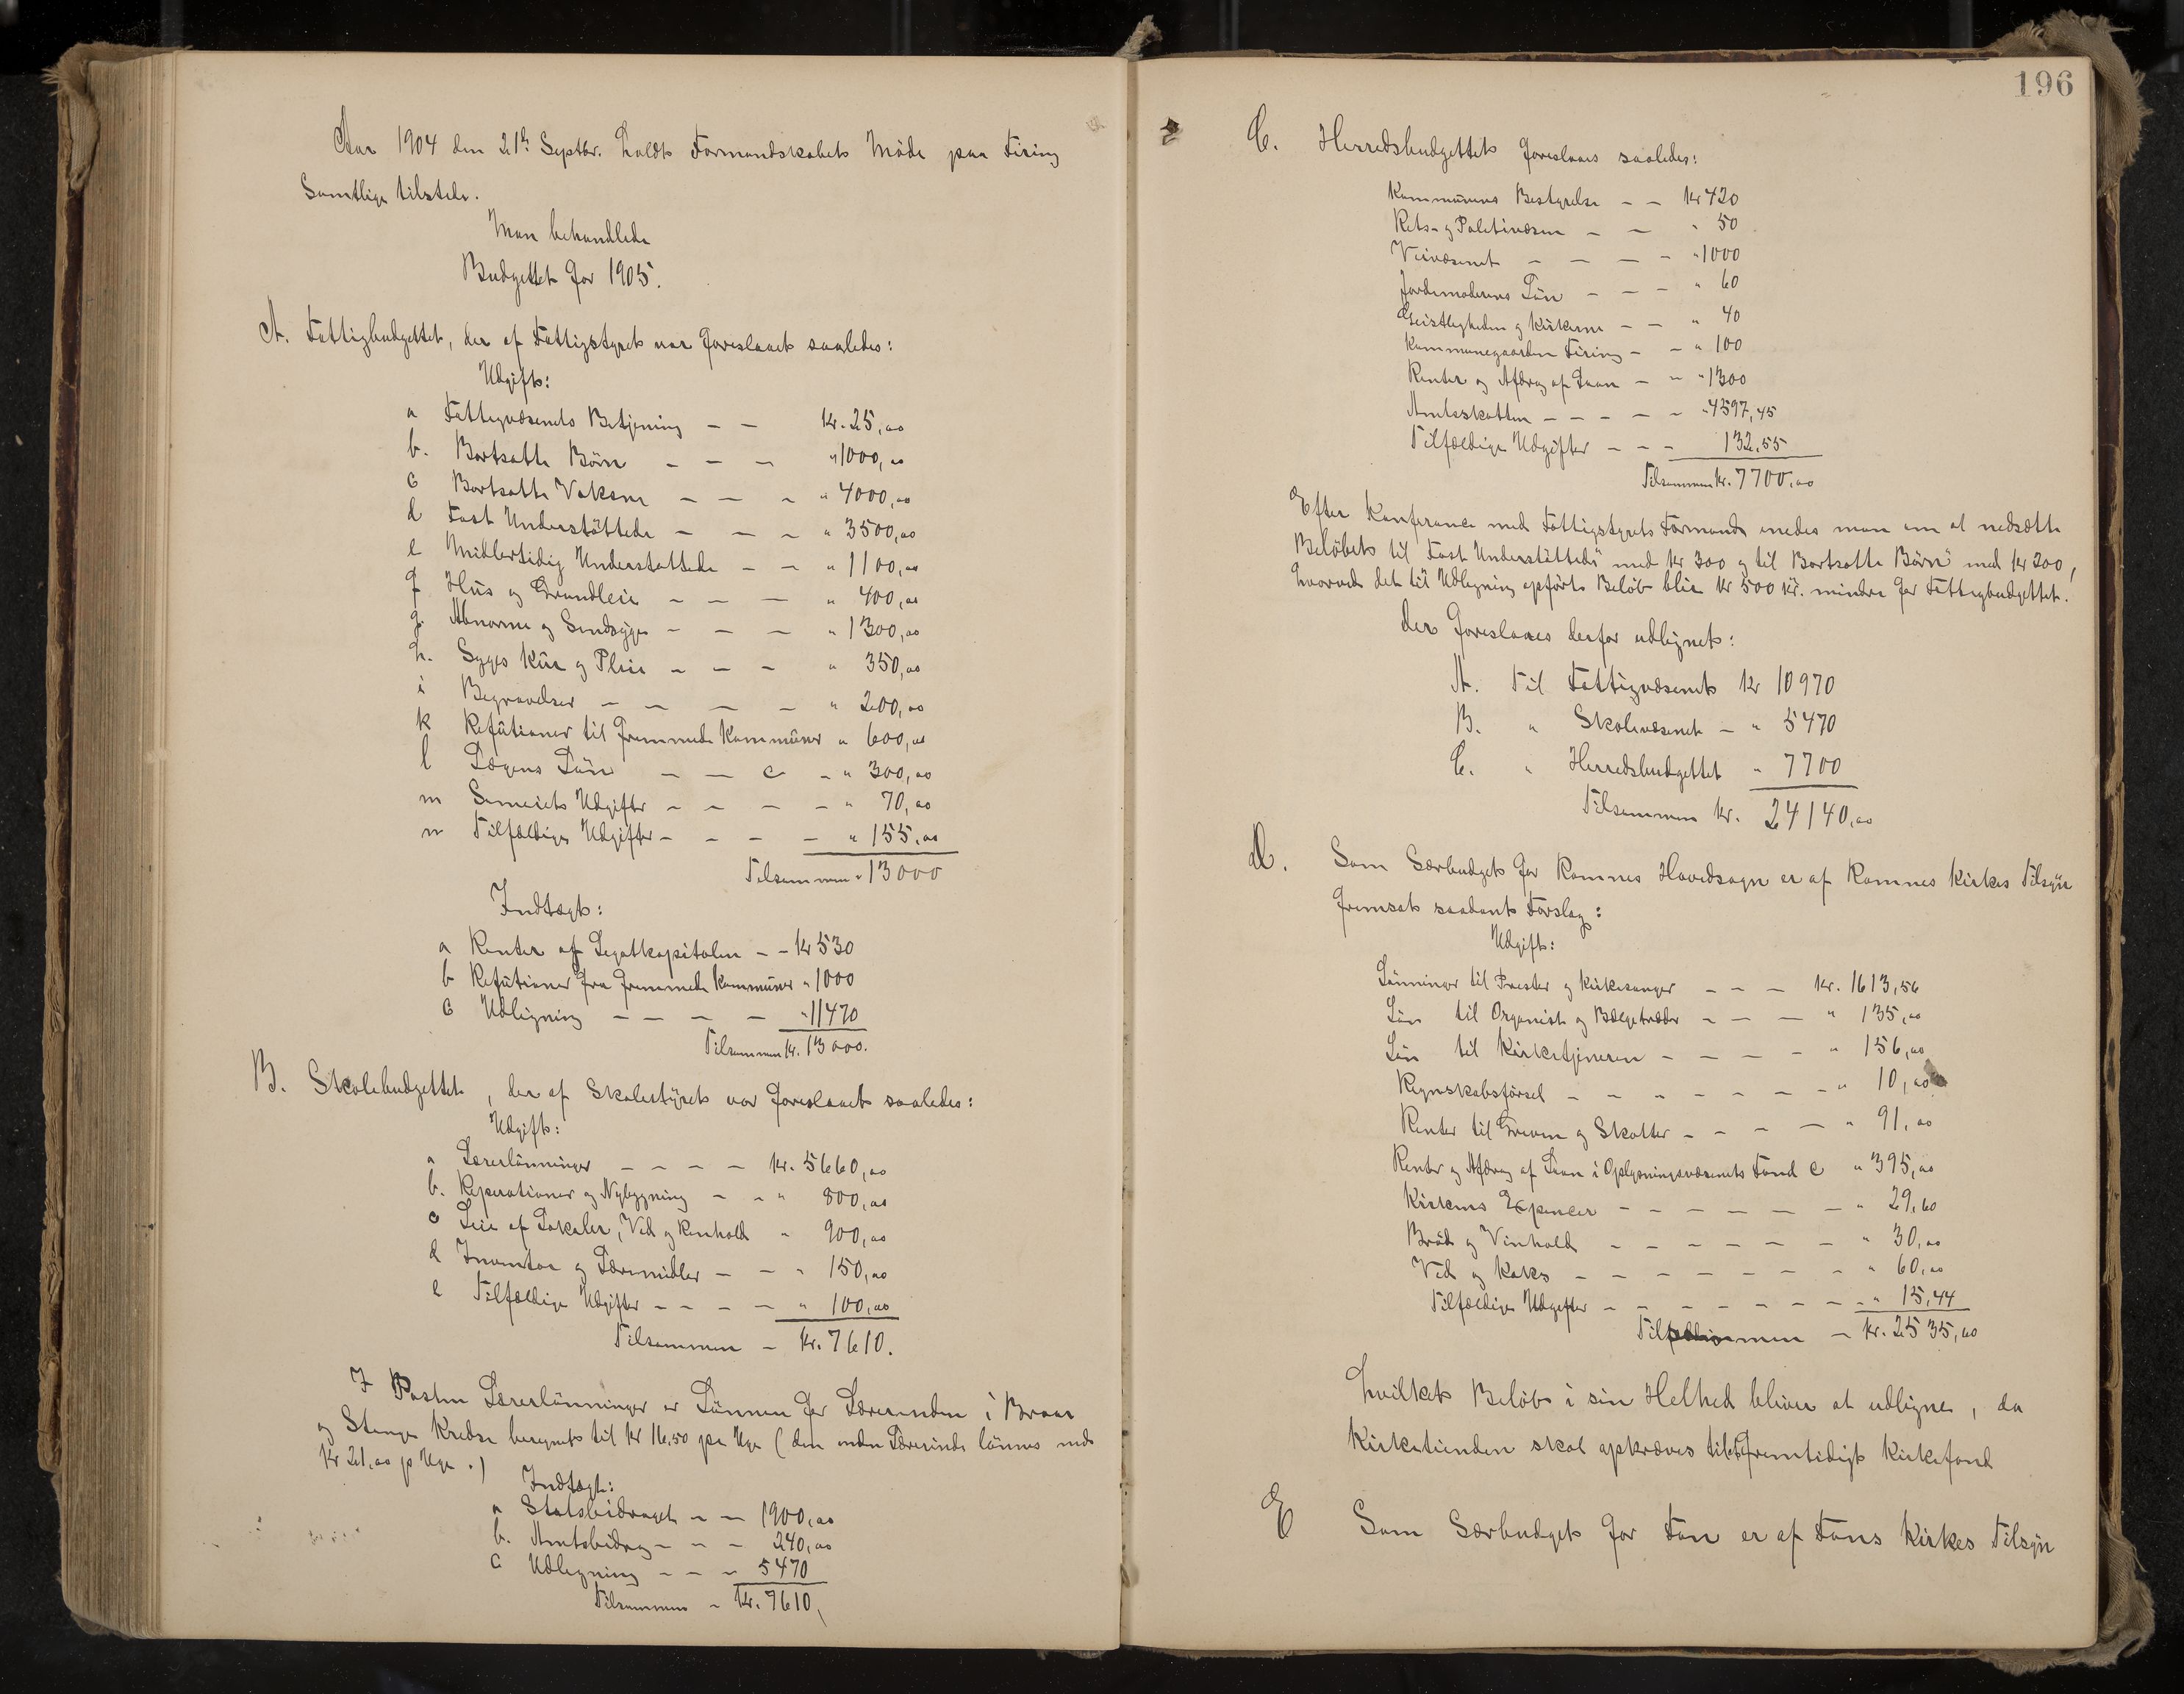 Aar 1904 den 21de Septbr. holdt Formandskabet Möde paa Firing
Samtlige tilstede.
Man behandlede
Budgettet for 1905.
A. Fattigbudgettet, der af Fattigstyret var foreslaaet saaledes:
Udgift:
a Fattigvæsenets Betjening – – Kr. 25,00
b. Bortsatte Börn – – – " 1000,00
c Bortsatte Voksne – – – " 4000,00
d Fast Understöttede – – – " 3500,00
e Midlertidig Understöttede – – " 1100,00
f Hus og Grundleie – – – " 400,00
g. Abnorme og Sindssyge – – – " 1300,00
h. Syges Kur og Pleie – – – " 350,00
i Begravelser – – – – " 200,00
k Refutioner til fremmede Kommuner " 600,00
l Lægens Lön – – c – " 300,00
m Semeiets Udgifter – – – – " 70,00
n Tilfældige Udgifter – – – – " 155,00
Tilsammen " 13000
Indtægt:
a Renter af Legatkapitalen – – Kr 530
b Refutioner fra fremmede Kommuner " 1000
c Udligning – – – – " 11470
Tilsammen Kr. 13000.
B. Skolebudgettet, der af Skolestyret var foreslaaet saaledes:
Udgift:
a Lærerlönninger – – – – Kr. 5660,00
b. Reparationer og Nybygning – – " 800,00
c Leie af Lokaler, Ved og Renhold " 900,00
d Inventar og Læremidler – – " 150,00
e Tilfældige Udgifter – – – – " 100,00
Tilsammen – Kr. 7610.
I Posten Lærerlönninger er Lönnen for Lærerinden i Braar
og Stange Kredse beregnet til Kr 16,50 pr Uge (den anden Lærerinde lönnes med
Kr 21,00 p Uge.)
Indtægt:
a Statsbidraget – – 1900,00
b. Amtsbidrag – – – 240,00
c Udligning – – – 5470
Tilsammen – Kr. 7610,
196
C. Herredsbudgettet foreslaaes saaledes:
Kommunens Bestyrelse – – Kr 420
Rets- og Politivæsen – – " 50
Veivæsenet – – – – " 1000
Jordemoderens Lön – – – " 60
Geistligheden og Kirkerne – – " 40
Kommunegaarden Firing – – " 100
Renter og Afdrag af Laan – – " 1300
Amtsskatten – – – – – " 4597,45
Tilfældige Udgifter – – – 132,55
Tilsammen Kr. 7700,00
Efter Konferance med Fattigstyrets Formand enedes man om at nedsætte
Belöbet til "Fast Understöttede" med Kr 300 og til "Bortsatte Börn" med Kr 200,
hvorved det til Udligning opförte Belöb blir Kr 500 Kr. mindre for Fattigbudgettet.
Der foreslaaes derfor udlignet:
A. Til Fattigvæsenet Kr 10970
B. " Skolevæsenet – " 5470
C. " Herredsbudgettet " 7700
Tilsammen Kr. 24140,00
D. Som Særbudget for Ramnes Hovedsogn er af Ramnes Kirkes Tilsyn
fremsat saadant Forslag:
Udgift:
Lönninger til Prester og Kirkesanger – – – Kr. 1613,56
Lön til Organist og Bælgetræder – – – " 135,00
Lön til Kirketjeneren – – – – " 156,00
Regnskabsförsel – – – – – – – " 10,00
Renter til Greven og Skatter – – – – " 91,00
Renter og Afdrag af Laan i Oplysningsvæsenets Fond c " 395,00
Kirkens Expencer – – – – – – " 29,60
Bröd og Vinhold – – – – – – " 30,00
Ved og Koks – – – – – – – " 60,00
Tilfældige Udgifter – – – – – – – " 15,44
Tilsammen – Kr. 2535,60
hvilket Belöb i sin Helhed bliver at udligne, da
Kirketienden skal opkræves til et fremtidigt Kirkefond
E Som Særbudget for Fon er af Fons Kirkes Tilsyn